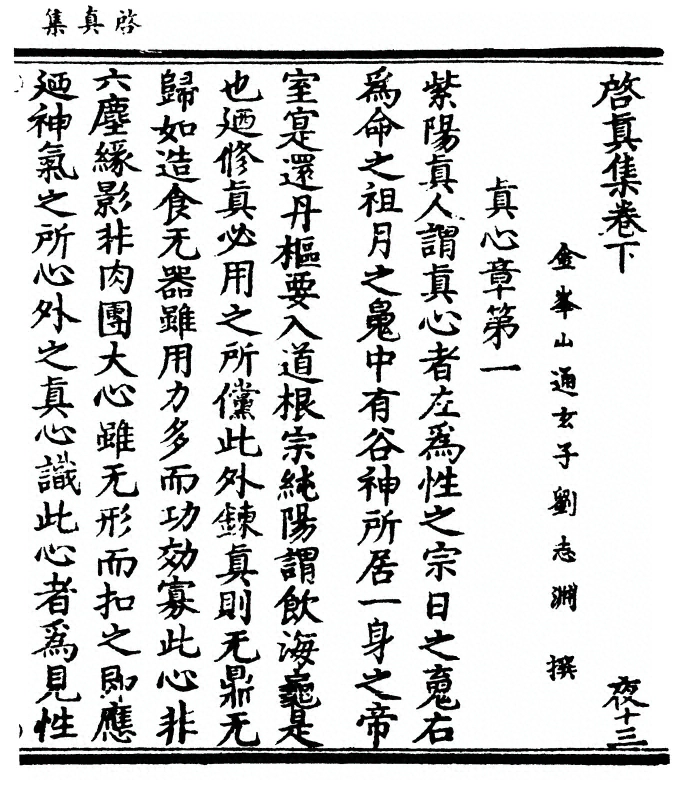 啓真集
啓眞集卷下
夜十三
金峯山通玄子劉志淵 撰
眞心章第一
紫陽眞人謂眞心者左爲性之宗日之䰟右
爲命之祖月之䰟中有谷神所居一身之帝
室寔還丹樞要入道根宗純陽謂飲海龜是
也廼修眞必用之所儻此外鍊眞則无鼎无
歸如造食无器雖用力多而功効寡此心非
六塵緣影非肉團大心雖无形而扣之即應
廼神氣之所心外之眞心識此心者爲見性